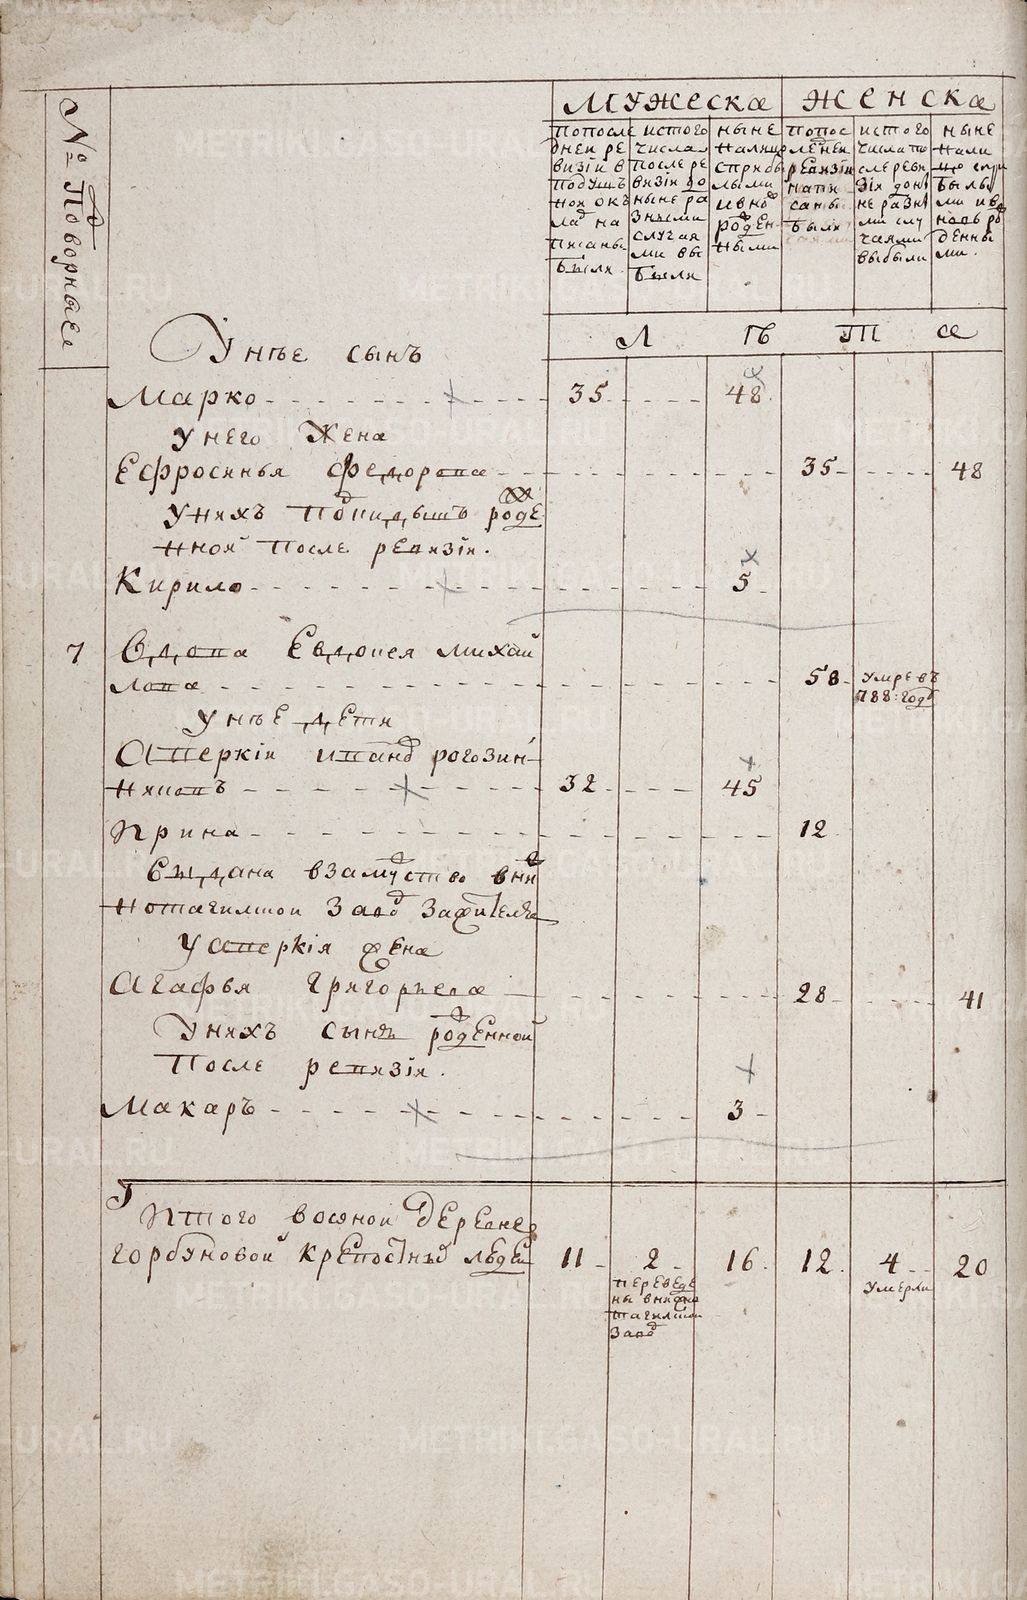 № Подворные
Мужеска
Женска
По после
дней ре
визіи в
подушъ
ной окъ
лад на
писаны
были
ис того
числа
после ре
визіи до
ныне ра
зными
случая
ми вы
были
ныне
на лицо
с прибы
лыми
и внов
рожден
ными
По пос
ледней
ревизіи
напи
саны
были
ис того
числа по
сле реви
зіи до н
не разны
ми слу
чаями
выбыли
ныне
нали
цо с при
былы
ми и в
новь ро
жденны
ми.
Лѣта
У нѣе сынъ
Марко 35 48
У него жена
Ефросинья Федорова 35 48
У нихъ роде
нной после ревизіи.
Кирило 5
7 Вдова Евдокея Михай
лова 58 умре въ
788 году
У нѣе дети
Аверкіи Иванов Рогозин
никовъ 32 45
Ирина 12
Выдана в замуство в ни
нотагилшой завод за жителя
У Аверкія жена
Агафья Григорьева 28 41
У нихъ сынъ роденной
после ревизія.
Макаръ 3
Итого в оной деревне
Горбуновой крепостных людей 11 2 16 12 4 20
переведе
ны в нижно
тагилшой
завод
умерли
METRIKI.GASO-URAL.RU